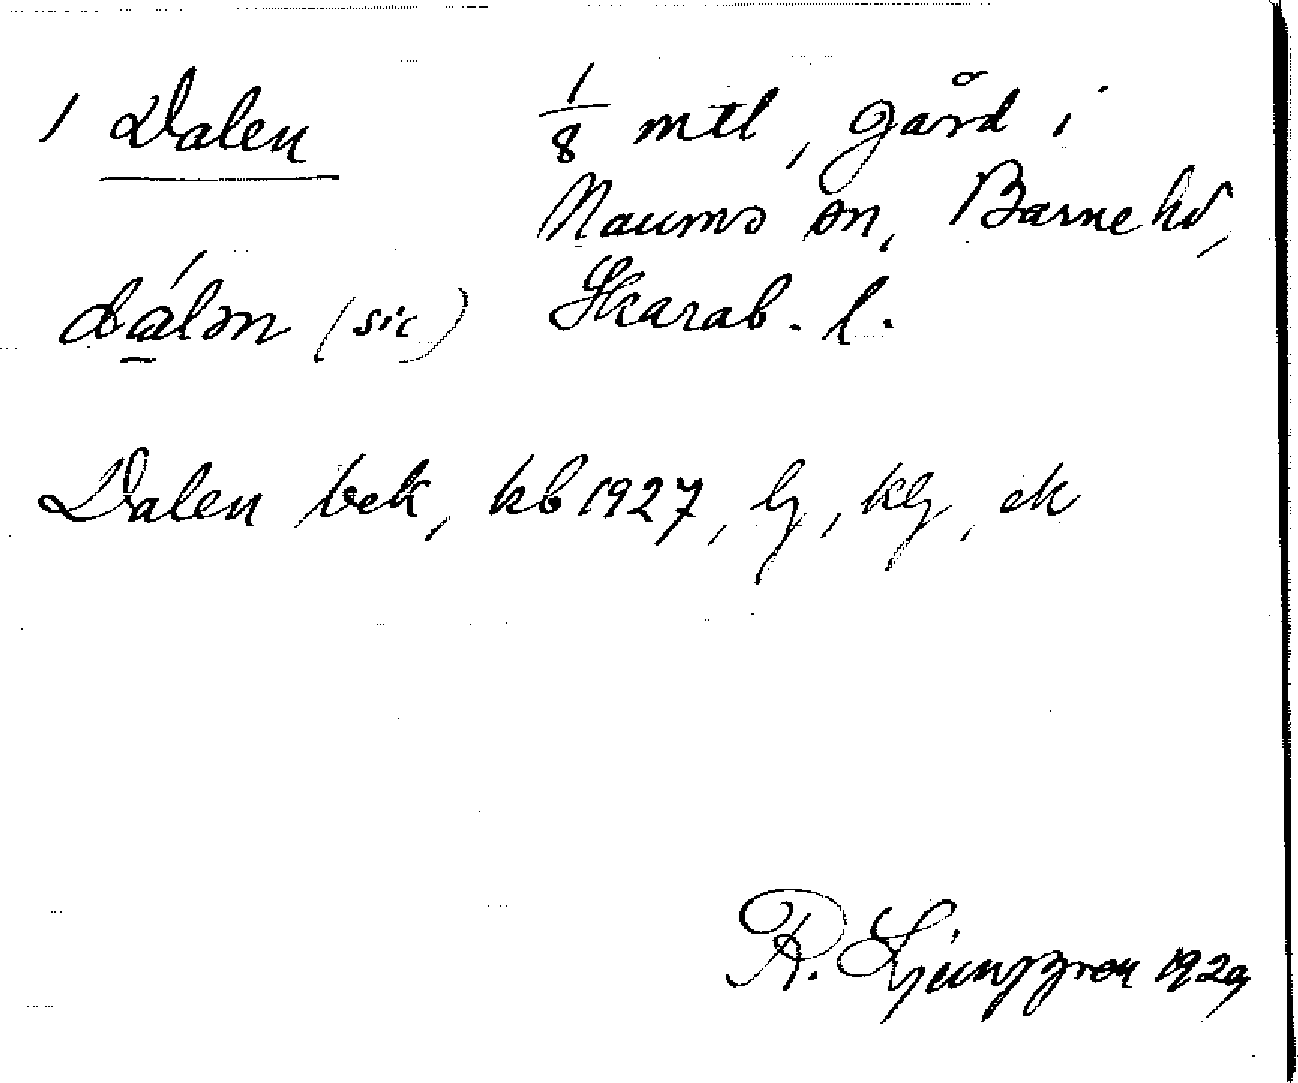 1 Dalen 1/8 mtl, gård i
Naums sn, Barne hd,
dálən (sic) Skarab. l.
Dalen bek, kb 1927, lj, klj, ek
R. Ljunggren 1929